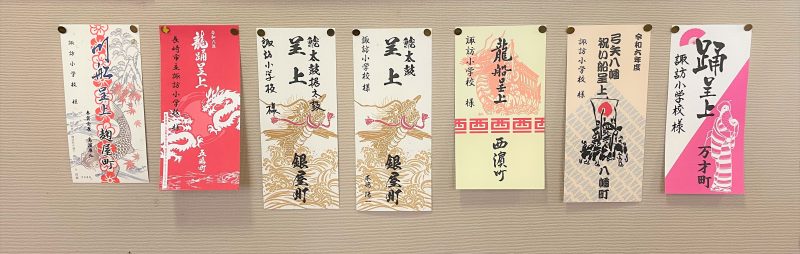 川船呈上
諏訪小学校 様
麹屋町
令和六年
龍踊呈上
長崎市立諏訪小学校 様
五嶋町
鯱太鼓
呈上
諏訪小学校 様
銀屋町
鯱太鼓
呈上
諏訪小学校 様
銀屋町
龍船呈上
諏訪小学校 様
西 西 西 西
西濵町
令和六年度
弓矢八幡
祝い船呈上
諏訪小学校 様
八幡町
踊呈上
諏訪小学校 様
万才町